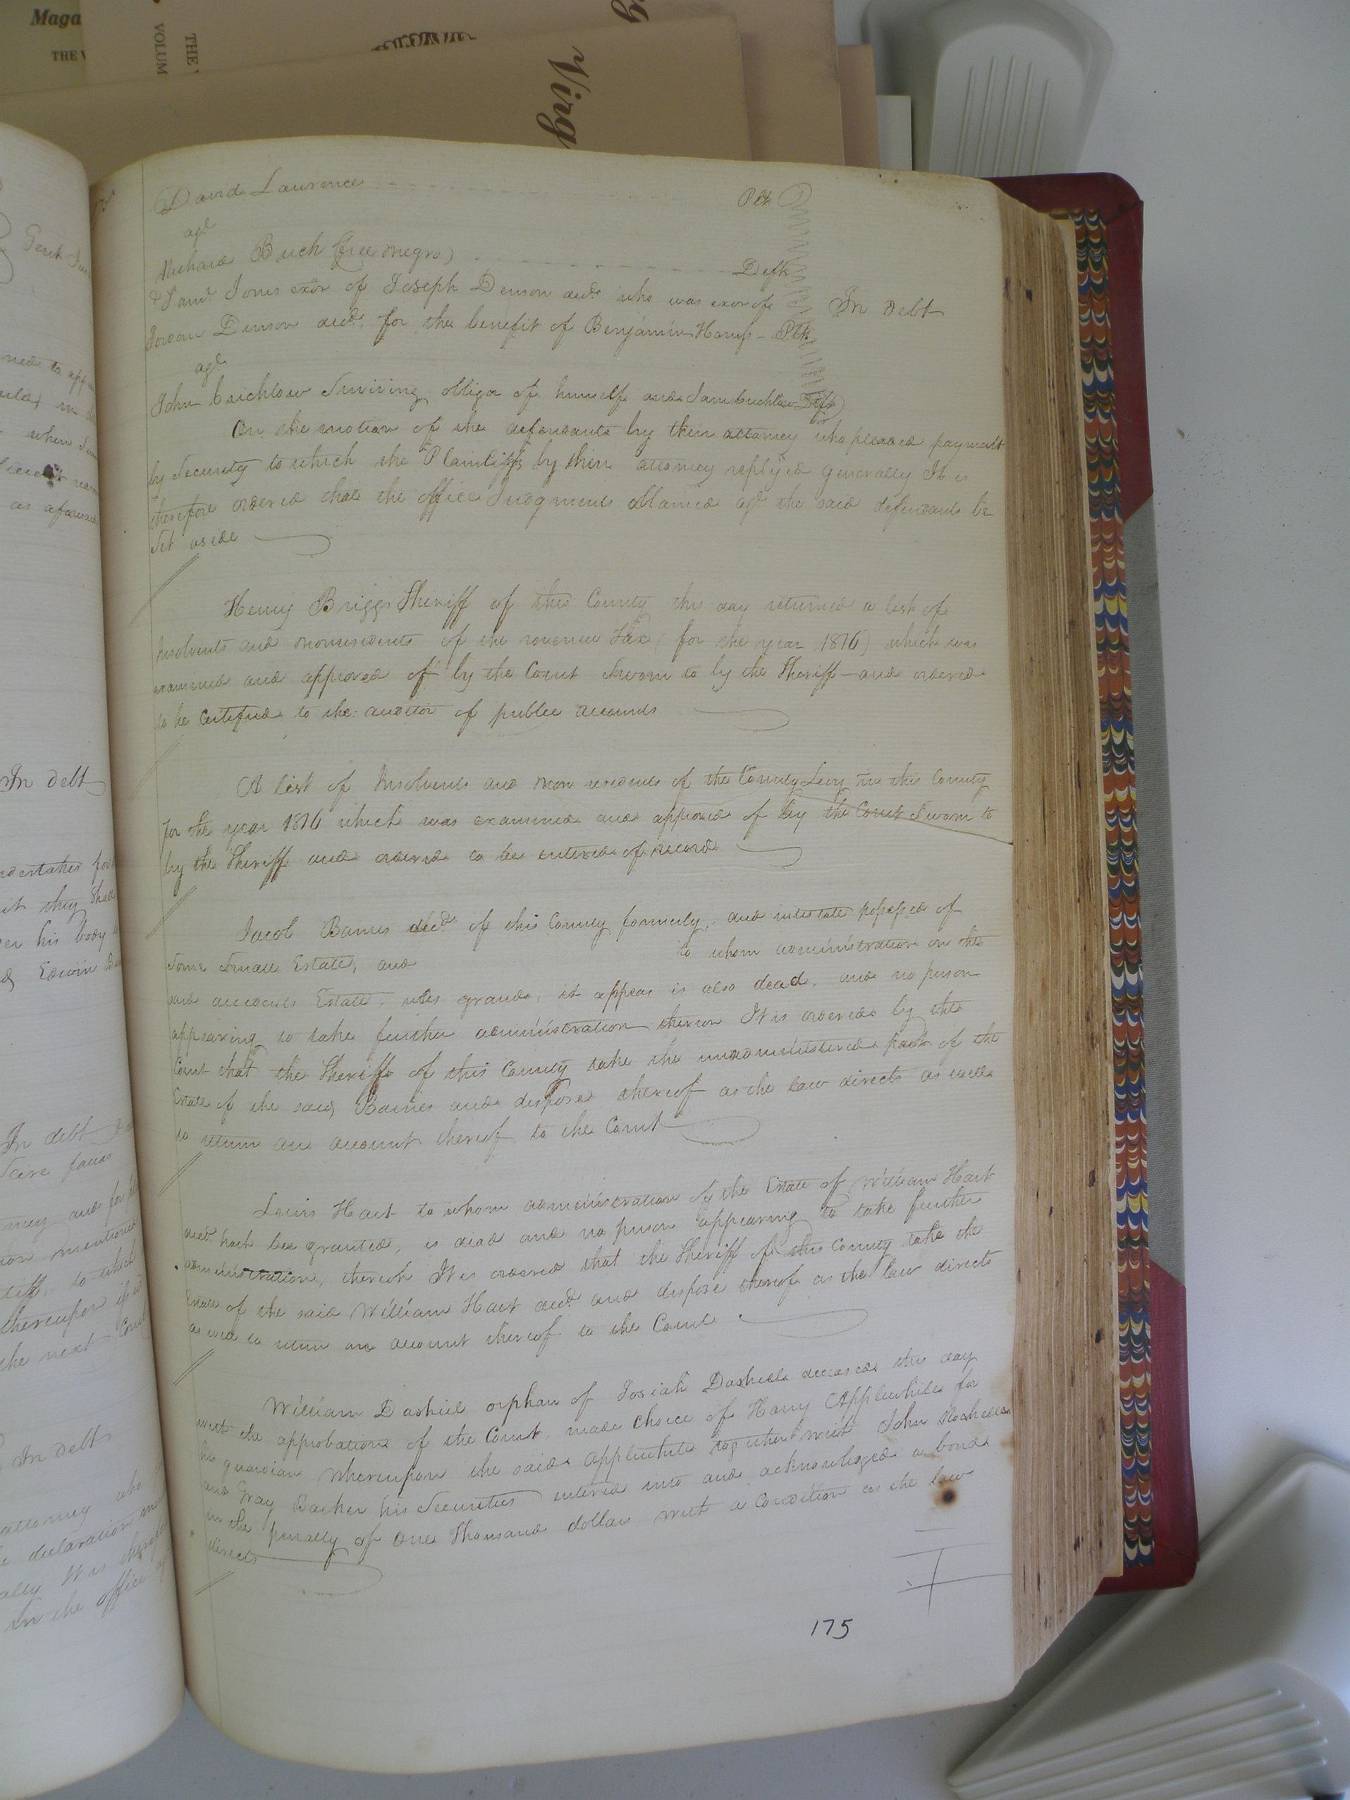 Maga
THE V
VOLUM
THE V
Virg
David Laurence Plt
agt
Michael Buck (free negro) Deft
Saml Jones exor of Joseph Denson decd who was exor of
In debt
Denson decd for the benefit of Benjamin Harris - Plt
agt
John Crichlow surviving obligor of himself and Sam Crichlow Deft
On the motion of the defendants by their attorney who pleaded payment
by Security to which the Plaintiffs by their attorney replyed generally It is
therefore ordered that the office Judgments obtained agt the said defendants be
Set aside
Henry Briggs Sheriff of this County this day returned a list of
Insolvents and nonresidents of the revenue Tax (for the year 1816) which was
examined and approved of by the Court Sworn to by the Sheriff and ordered
to be Certified to the auditor of public accounts
A list of Insolvents and non residents of the County Levy in this County
for the year 1816 which was examined and approved of by the Court Sworn to
by the Sheriff and ordered to be entered of record
Jacob Barnes decd of this County formerly, and intestate possessed of
Some Small Estate, and to whom administration on the
said decedents Estate, was granted, it appears is also dead, and no person
appearing to take further administration thereon It is ordered by the
Court that the Sheriff of this County take the unadministered part of the
Estate of the said Barnes and dispose thereof as the law directs as well
to return an account thereof to the Court
Lewis Hart to whom administration of the Estate of William Hart
decd hath been granted, is dead and no person appearing to take further
administration, thereon It is ordered that the Sheriff of this County take the
Estate of the said William Hart decd and dispose thereof as the law directs
as well to return an account thereof to the Court
William Dashiel orphan of Josiah Dashiell deceased this day
with the approbation of the Court, made choice of Harry Applewhite for
his guardian whereupon the said Applewhite together with John Rochelle
and Gray Barker his Securities entered into and acknowledged a bond
in the penalty of one Thousand dollars with a Condition as the law
directs
175
In debt
In debt
In debt